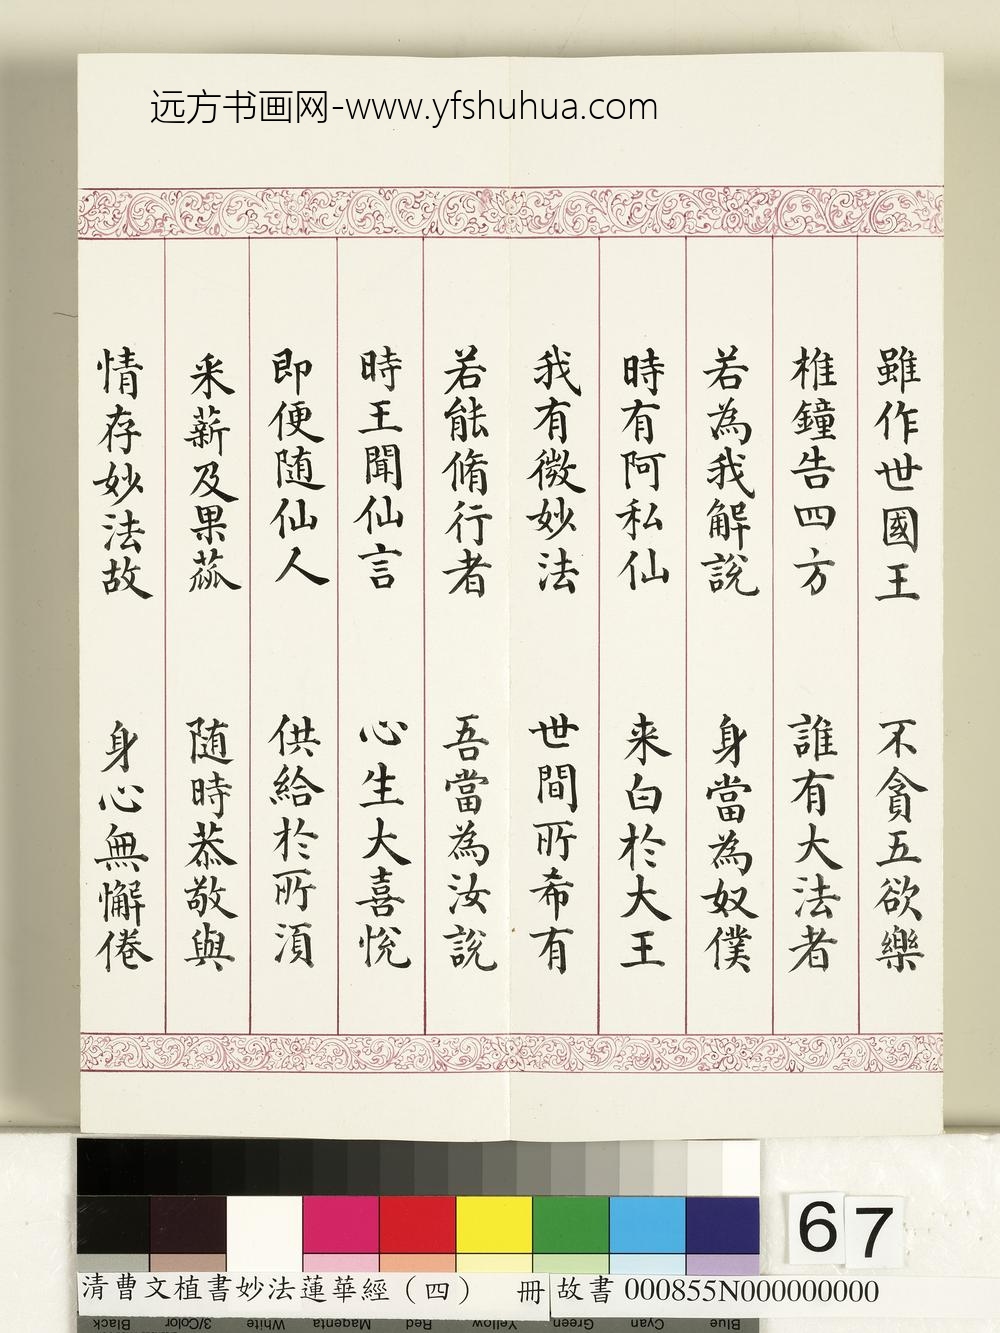 远方书画网-www.yfshuhua.com
雖作世國王 不貪五欲樂
椎鐘告四方 誰有大法者
若為我解說 身當為奴僕
時有阿私仙 来白於大王
我有微妙法 世間所希有
若能脩行者 吾當為汝說
時王聞仙言 心生大喜悅
即便随仙人 供給於所須
采薪及果蓏 随時恭敬與
情存妙法故 身心無懈倦
67
清曹文植書妙法蓮華經（四） 冊 故書 000855N000000000
Black 3/Color White Magenta Red Yellow Green Cyan Blue